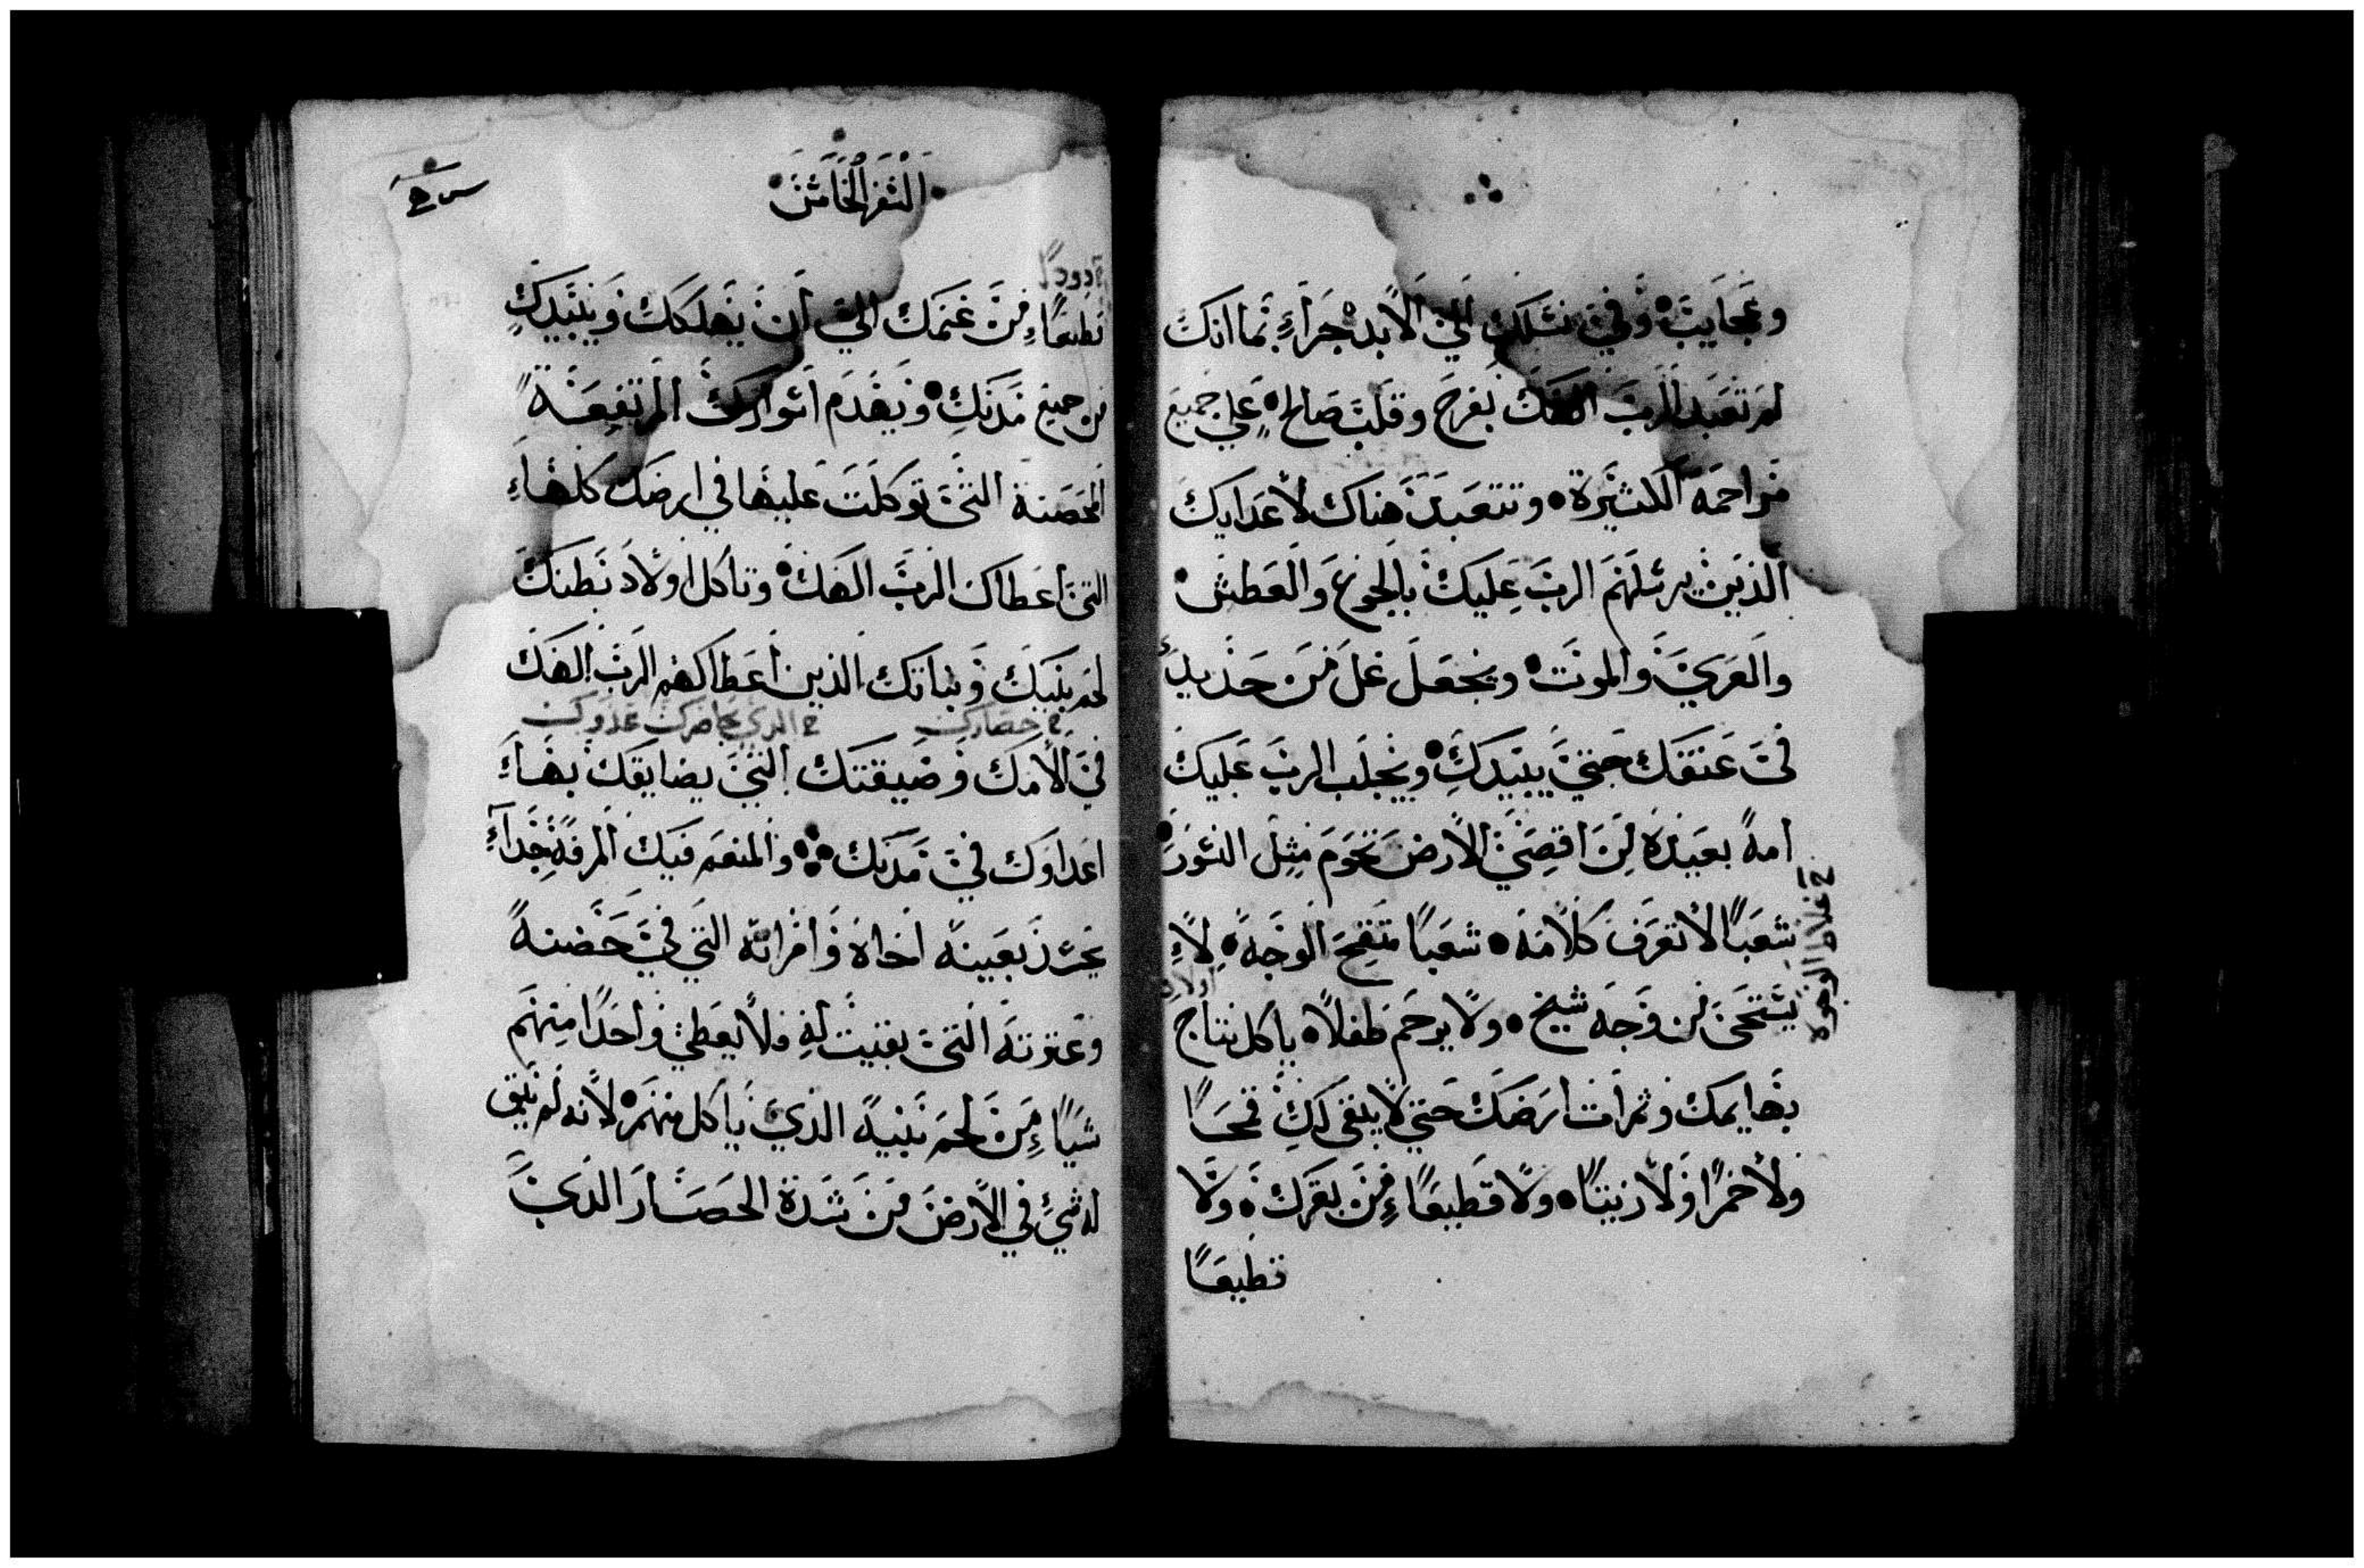 وعجايب وفي نسلك الي الابد جزاء بما انك
لم تعبد الرب الهك بفرح وقلب صالح علي جميع
مراحمه الكثيرة وتتعبد هناك لأعدايك
الذين يرسلهم الرب عليك بالجوع والعطش
والعري والموت ويجعل غل من حديد
في عنقك حتي يبيدك ويجلب الرب عليك
امة بعيدة من اقصي الارض تحوم مثل النسور
شعبًا لا تعرف كلامه شعبًا متقح الوجه لا
يستحي من وجه شيخ ولا يرحم طفلاً ياكل نتاج
اولاد
بهايمك وثمرات ارضك حتي لا يبقي لك قمحًا
ولا خمرًا ولا زيتًا ولا قطيعًا من بقرك ولا
قطيعًا
السفر الخامس
قطيعًا من غنمك الي ان يهلكك ويبيدك
من جميع مدنك ويهدم اسوارك المرتفعة
الحصنة التي توكلت عليها في ارضك كلها
التي اعطاك الرب الهك وتاكل اولاد بطنك
لحم بنيك وبناتك الذين اعطاكهم الرب الهك
حصارك الذي يحاصرك عدوك
في الامك وضيقتك التي يضايقك بها
اعداوك في مدنك والمنعم فيك المرفه جدا
يحسد بعينه اخاه وامراته التي في حضنه
وعترته التي بقيت له فلا يعطي واحدًا منهم
شيًا من لحم بنيه الذي ياكل منهم لانه لم يبق
له شي في الارض من شدة الحصار الذي